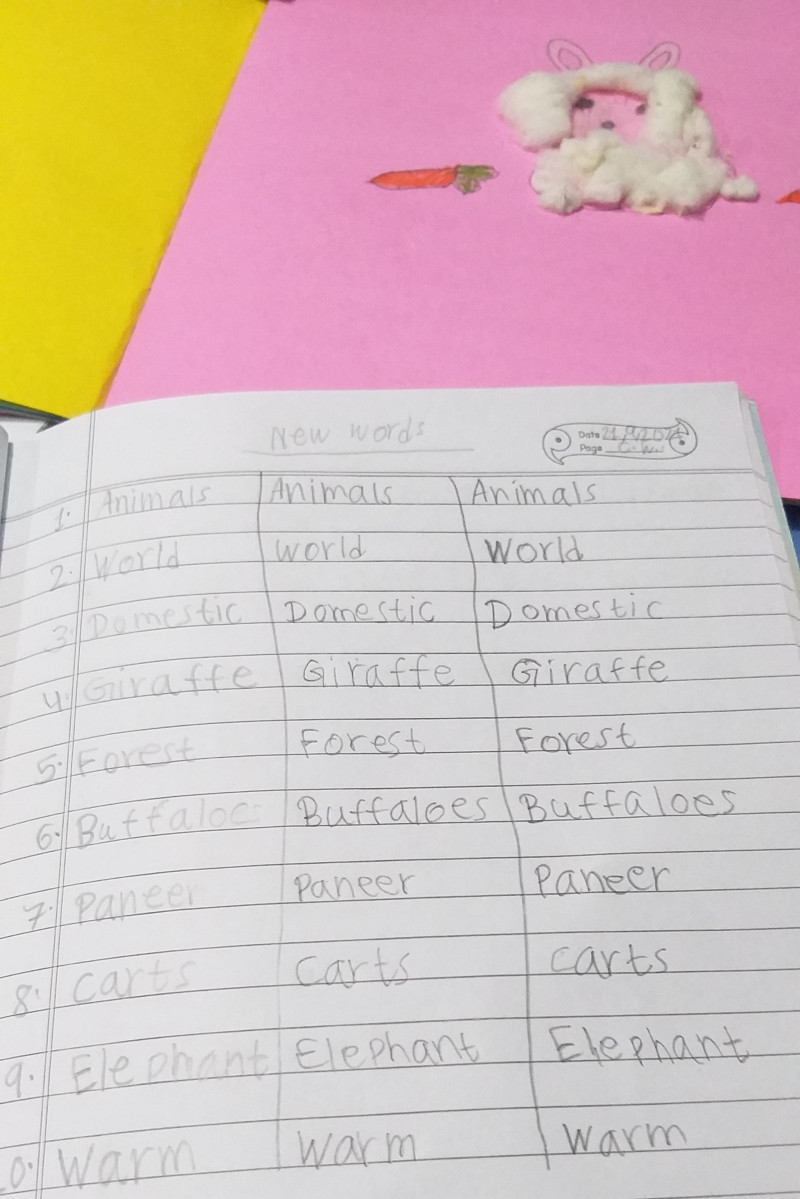 New words
Date 21
Page C.W
1. Animals Animals Animals
2. World World World
3. Domestic Domestic Domestic
4. Giraffe Giraffe Giraffe
5. Forest Forest Forest
6. Buffaloes Buffaloes Buffaloes
7. Paneer Paneer Paneer
8. Carts Carts Carts
9. Elephant Elephant Elephant
0. Warm Warm Warm